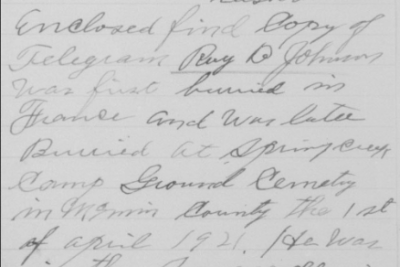 Enclosed find Copy of
Telegram Roy D Johnson
was first buried in
France and was later
Buried at Spring creek
Camp Ground Cemetry
in McMinn County the 1st
of april 1921. He was
in the